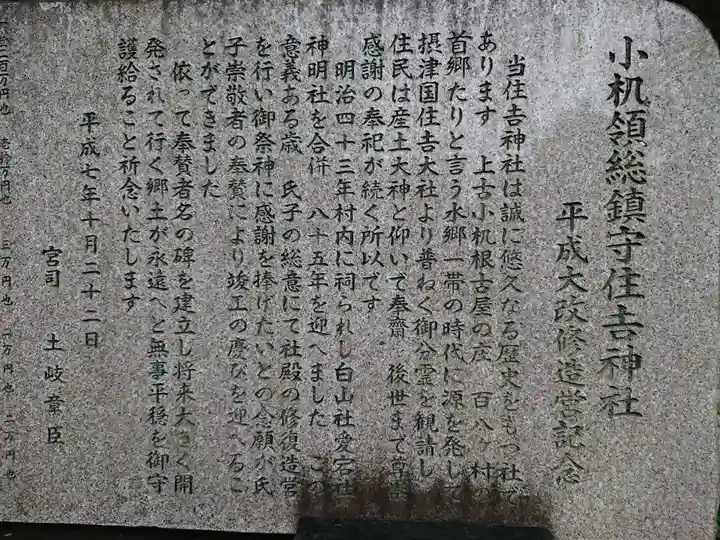 小机領総鎮守住吉神社
平成大改修造営記念
当住吉神社は誠に悠久なる歴史をもつ社で
あります 上古小机根古屋の庄 百八ヶ村の
首郷たりと言う水郷一帯の時代に源を発して
摂津国住吉大社より普ねく御分霊を観請し
住民は産土大神と仰いで奉齋 後世まで尊崇
感謝の奉祀が続く所以です
明治四十三年村内に祠られし白山社愛宕社
神明社を合併 八十五年を迎へました この
意義ある歳 氏子の総意にて社殿の修復造営
を行い御祭神に感謝を捧げたいとの念願が氏
子崇敬者の奉賛により竣工の慶びを迎へるこ
とができました
依って奉賛者名の碑を建立し将来大きく開
発されて行く郷土が永遠へと無事平穏を御守
護給ること祈念いたします
平成七年十月二十二日
宮司 土岐章臣
万円也 壱拾万円也 三万円也 一万円也 二万円也